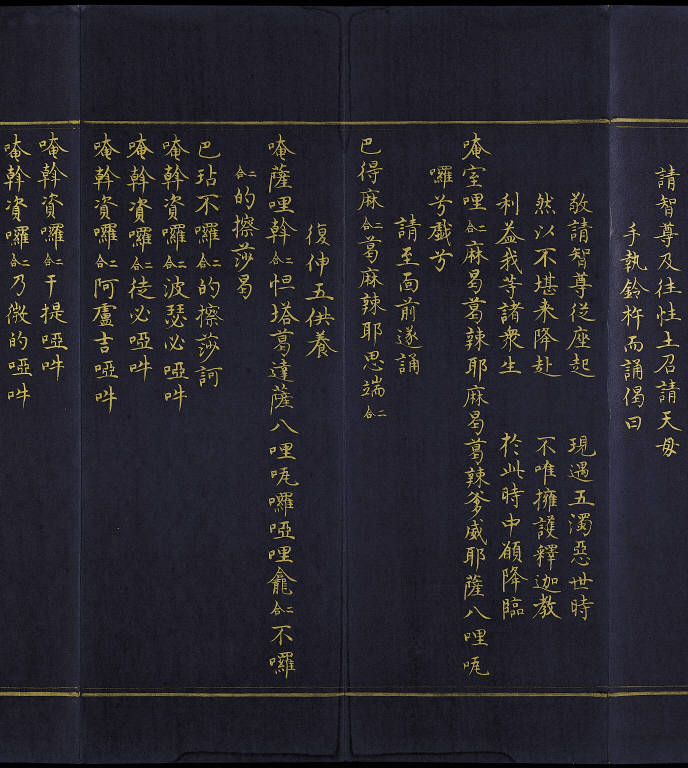 請智尊及往性土召請天母
手執鈴杵而誦偈曰
敬請智尊從座起 現遇五濁惡世時
然以不堪来降赴 不唯擁護釋迦教
利益我等諸衆生 於此時中願降臨
唵室哩二合麻曷葛辣耶麻曷葛辣爹威耶薩八哩㖿
囉兮戲兮
請至面前遂誦
巴得麻二合葛麻辣耶思端二合
復伸五供養
唵薩哩斡二合怛塔葛達薩八哩㖿囉啞哩龕二合不囉
二合的擦莎曷
巴玷不囉二合的擦莎訶
唵斡資囉二合波瑟必啞吽
唵斡資囉二合徒必啞吽
唵斡資囉二合阿盧吉啞吽
唵斡資囉二合干提啞吽
唵斡資囉二合乃微的啞吽